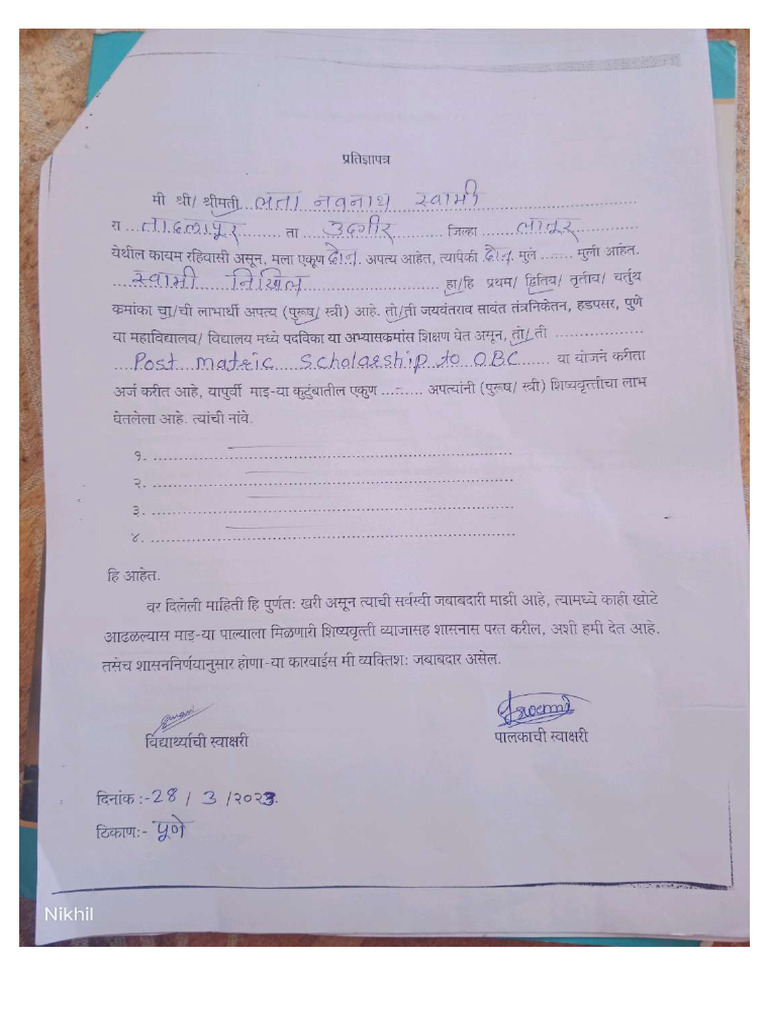 प्रतिज्ञापत्र
मी श्री/ श्रीमती लता नवनाथ स्वामी
रा तादलापूर ता उदगीर जिल्हा लातूर
येथील कायम रहिवासी असून, मला एकूण दोन. अपत्य आहेत, त्यापैकी दोन. मुले ........ मुली आहेत.
स्वामी निखिल हा/हि प्रथम/ द्वितिय/ तृतीय/ चर्तुथ
क्रमांका चा/ची लाभार्थी अपत्य (पुरूष/ स्त्री) आहे. तो/ती जयवंतराव सावंत तंत्रनिकेतन, हडपसर, पुणे
या महाविद्यालय/ विद्यालय मध्ये पदविका या अभ्यासक्रमांस शिक्षण घेत असून, तो/ ती ....................
Post Matric Scholarship to OBC या योजने करीता
अर्ज करीत आहे, यापुर्वी माइ-या कुटुंबातील एकुण ........ अपत्यांनी (पुरूष/ स्त्री) शिष्यवृत्तीचा लाभ
घेतलेला आहे. त्यांची नांवे.
१.
२.
३.
४.
हि आहेत.
वर दिलेली माहिती हि पुर्णत: खरी असून त्याची सर्वस्वी जबाबदारी माझी आहे, त्यामध्ये काही खोटे
आढळल्यास माइ-या पाल्याला मिळणारी शिष्यवृत्ती व्याजासह शासनास परत करील, अशी हमी देत आहे.
तसेच शासननिर्णयानुसार होणा-या कारवाईस मी व्यक्तिश: जबाबदार असेल.
विद्यार्थ्याची स्वाक्षरी पालकाची स्वाक्षरी
दिनांक :- 28 / 3 /२०२३.
ठिकाण:- पूणे
Nikhil